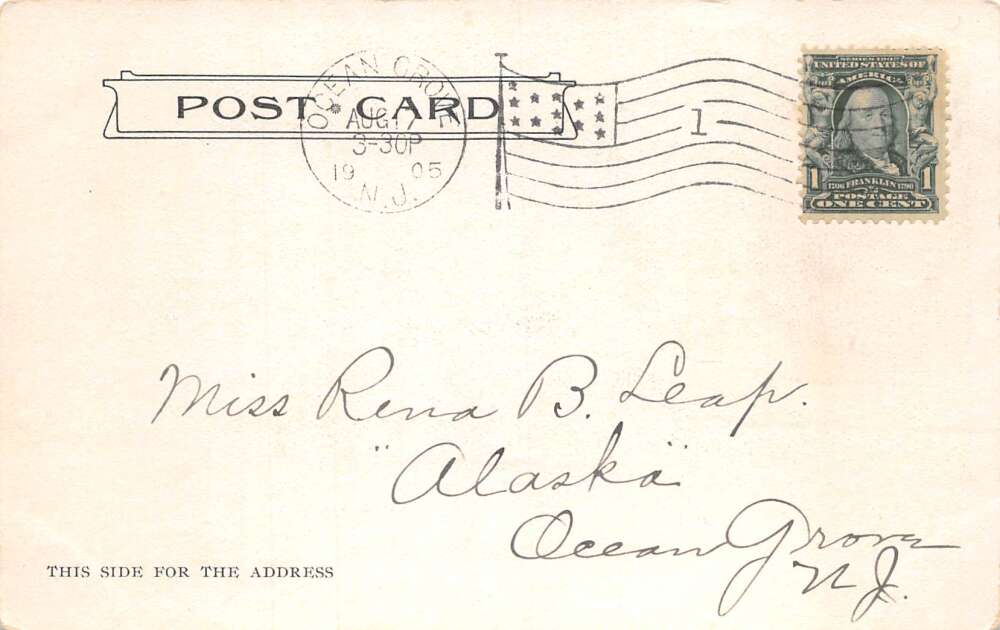 POST CARD
OCEAN GROVE
AUG 17
3-30P
19 05
N.J.
1
SERIES 1902
UNITED STATES OF
AMERICA
1 1
1706 FRANKLIN 1790
POSTAGE
ONE CENT
Miss Rena B. Leap.
"Alaska"
Ocean Grove
N.J.
THIS SIDE FOR THE ADDRESS